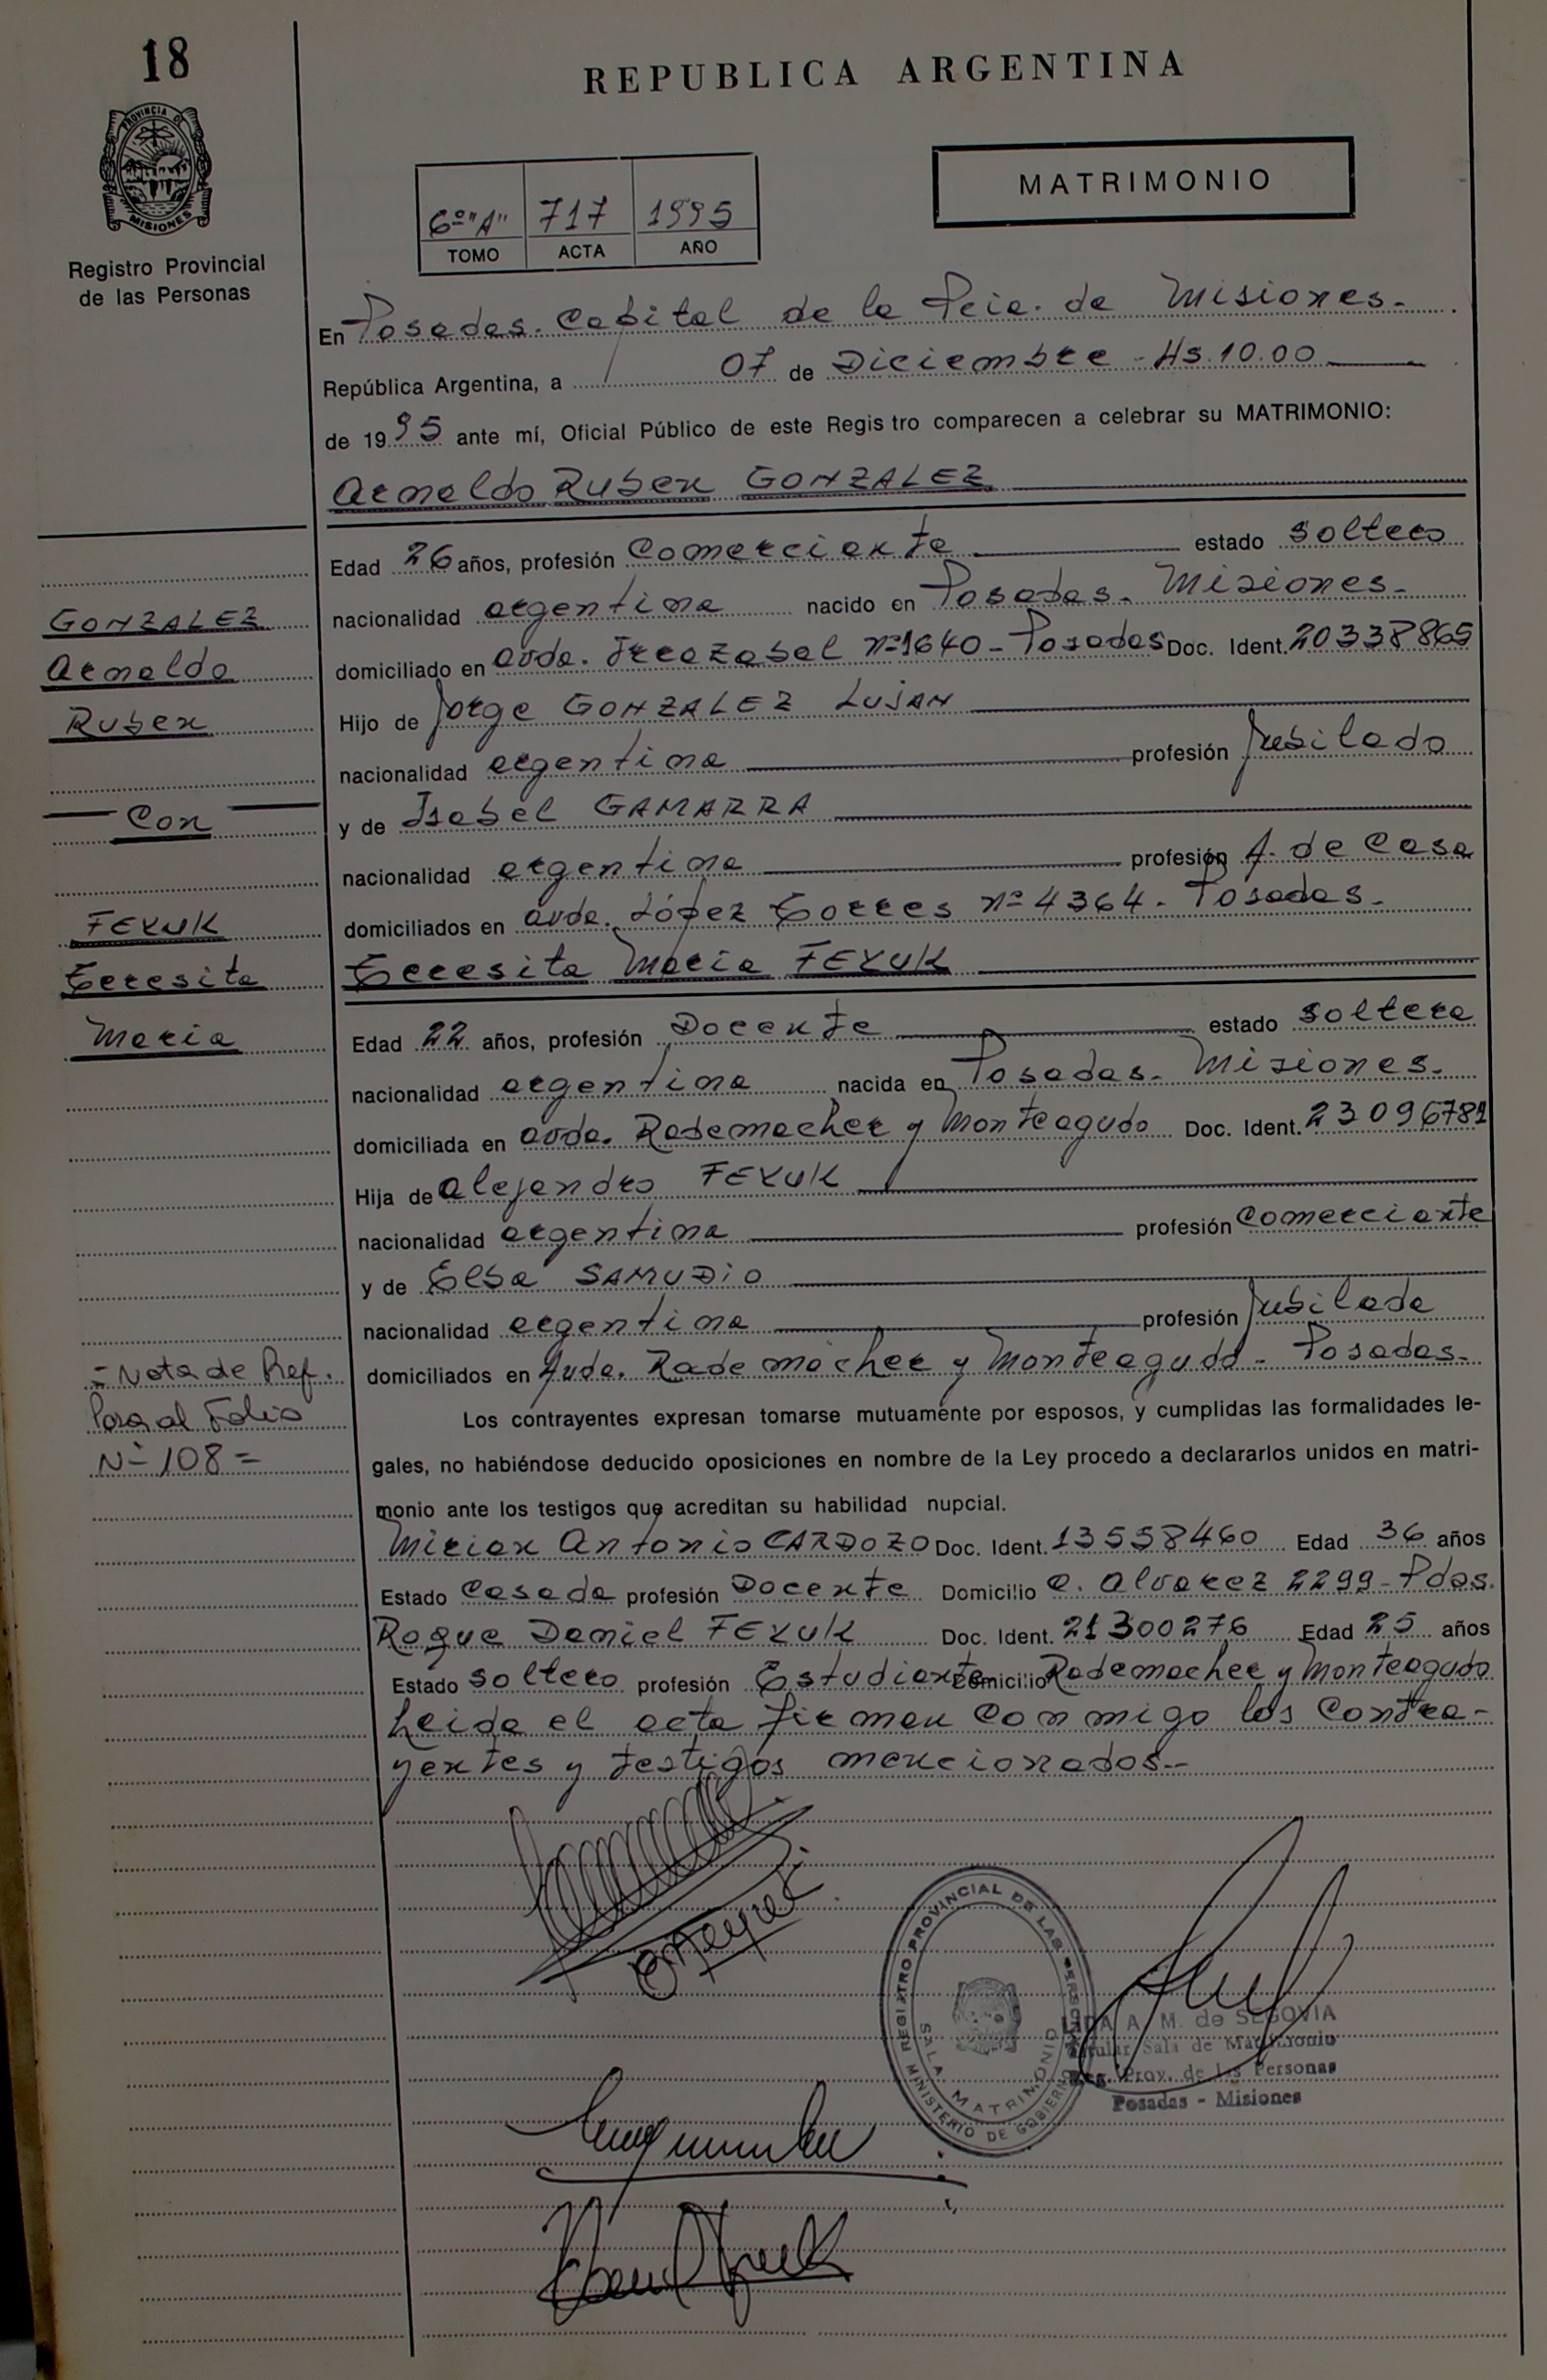 18
REPUBLICA ARGENTINA
PROVINCIA DE
MISIONES
Registro Provincial
de las Personas
MATRIMONIO
6º "A" 717 1995
TOMO ACTA AÑO
En Posadas. Capital de la Pcia. de Misiones.
República Argentina, a 07 de Diciembre - Hs. 10.00
de 1995 ante mí, Oficial Público de este Registro comparecen a celebrar su MATRIMONIO:
Arnaldo Ruben GONZALEZ
Edad 26 años, profesión Comerciante estado soltero
nacionalidad argentina nacido en Posadas. Misiones.
domiciliado en avda. Nº 1640 - Posadas Doc. Ident. 20338865
Hijo de Jorge GONZALEZ LUJAN
nacionalidad argentina profesión Jubilado
y de Isabel GAMARRA
nacionalidad argentina profesión A. de Casa
domiciliados en avda. López Torres nº 4364. Posadas.
Teresita Maria FEYUK
Edad 22 años, profesión Docente estado soltera
nacionalidad argentina nacida en Posadas. Misiones.
domiciliada en avda. Rademacher y Monteagudo Doc. Ident. 23096781
Hija de Alejandro FEYUK
nacionalidad argentina profesión Comerciante
y de Elba SAMUDIO
nacionalidad argentina profesión Jubilada
domiciliados en Avda. Rademacher y Monteagudo - Posadas.
Los contrayentes expresan tomarse mutuamente por esposos, y cumplidas las formalidades le-
gales, no habiéndose deducido oposiciones en nombre de la Ley procedo a declararlos unidos en matri-
monio ante los testigos que acreditan su habilidad nupcial.
Mirian Antonia CARDOZO Doc. Ident. 13558460 Edad 36 años
Estado Casada profesión Docente Domicilio C. Alvarez 2299 - Pdas.
Roque Daniel FEYUK Doc. Ident. 21300276 Edad 25 años
Estado soltero profesión Estudiante Domicilio Rademacher y Monteagudo
Leida el acta firman conmigo los contra-
yentes y testigos mencionados.-
GONZALEZ
Arnaldo
Ruben
Con
FEYUK
Teresita
Maria
=Nota de Ref.
Pasa al Folio
Nº 108=
REGISTRO PROVINCIAL DE LAS PERSONAS
SALA MATRIMONIO
MINISTERIO DE GOBIERNO
LIDA A. M. de SEGOVIA
Titular Sala de Matrimonio
Reg. Prov. de las Personas
Posadas - Misiones